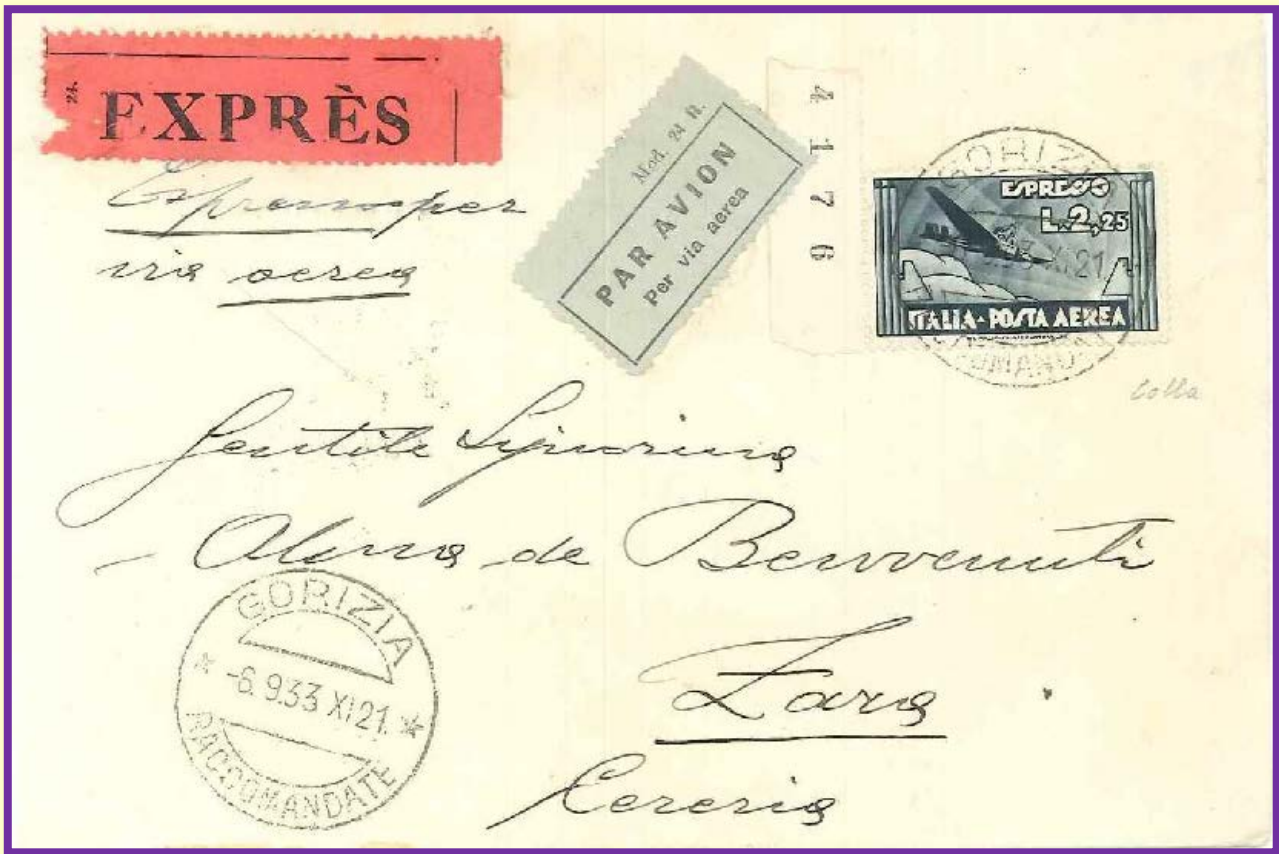 24.
EXPRÈS
Espresso per
via aerea
Mod. 24 B.
PAR AVION
Per via aerea
4176
GORIZIA
ESPRESSO
L.2,25
XI 21
ITALIA-POSTA AEREA
Gentile Signorina
Alma de Benvenuti
Zara
Cereria
GORIZIA
-6.9.33 XI 21
RACCOMANDATE